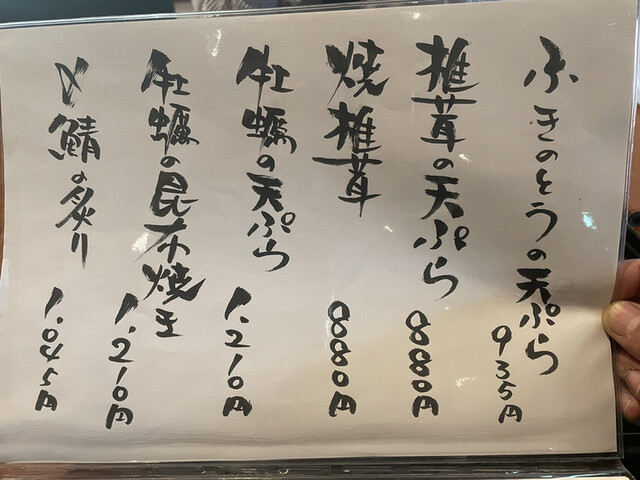 ふきのとうの天ぷら 935円
椎茸の天ぷら 880円
焼椎茸 880円
牡蠣の天ぷら 1,210円
牡蠣の昆布焼き 1,210円
〆鯖の炙り 1,045円